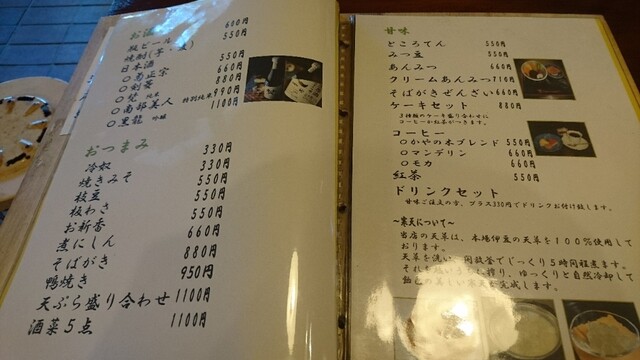 お酒
瓶ビール 600円
焼酎(芋・麦) 550円
日本酒 550円
○菊正宗 660円
○剣菱 880円
○梵 純米 990円
○南部美人 特別純米 990円
○黒龍 吟醸 1100円
おつまみ
冷奴 330円
焼きみそ 330円
枝豆 550円
板わさ 550円
お新香 550円
煮にしん 660円
そばがき 880円
鴨焼き 950円
天ぷら盛り合わせ 1100円
酒菜5点 1100円
甘味
ところてん 550円
みつ豆 550円
あんみつ 660円
クリームあんみつ 710円
そばがきぜんざい 660円
ケーキセット 880円
3種類のケーキ盛り合わせに
コーヒーか紅茶がつきます。
コーヒー
○かやの木ブレンド 550円
○マンデリン 660円
○モカ 660円
紅茶 550円
ドリンクセット
甘味ご注文の方、プラス330円でドリンクお付け致します。
〜寒天について〜
当店の天草は、本場伊豆の天草を100%使用して
おります。
天草を洗い、回転釜でじっくり5時間程煮ます。
搾り、ゆっくりと自然冷却して
美しい寒天が完成します。